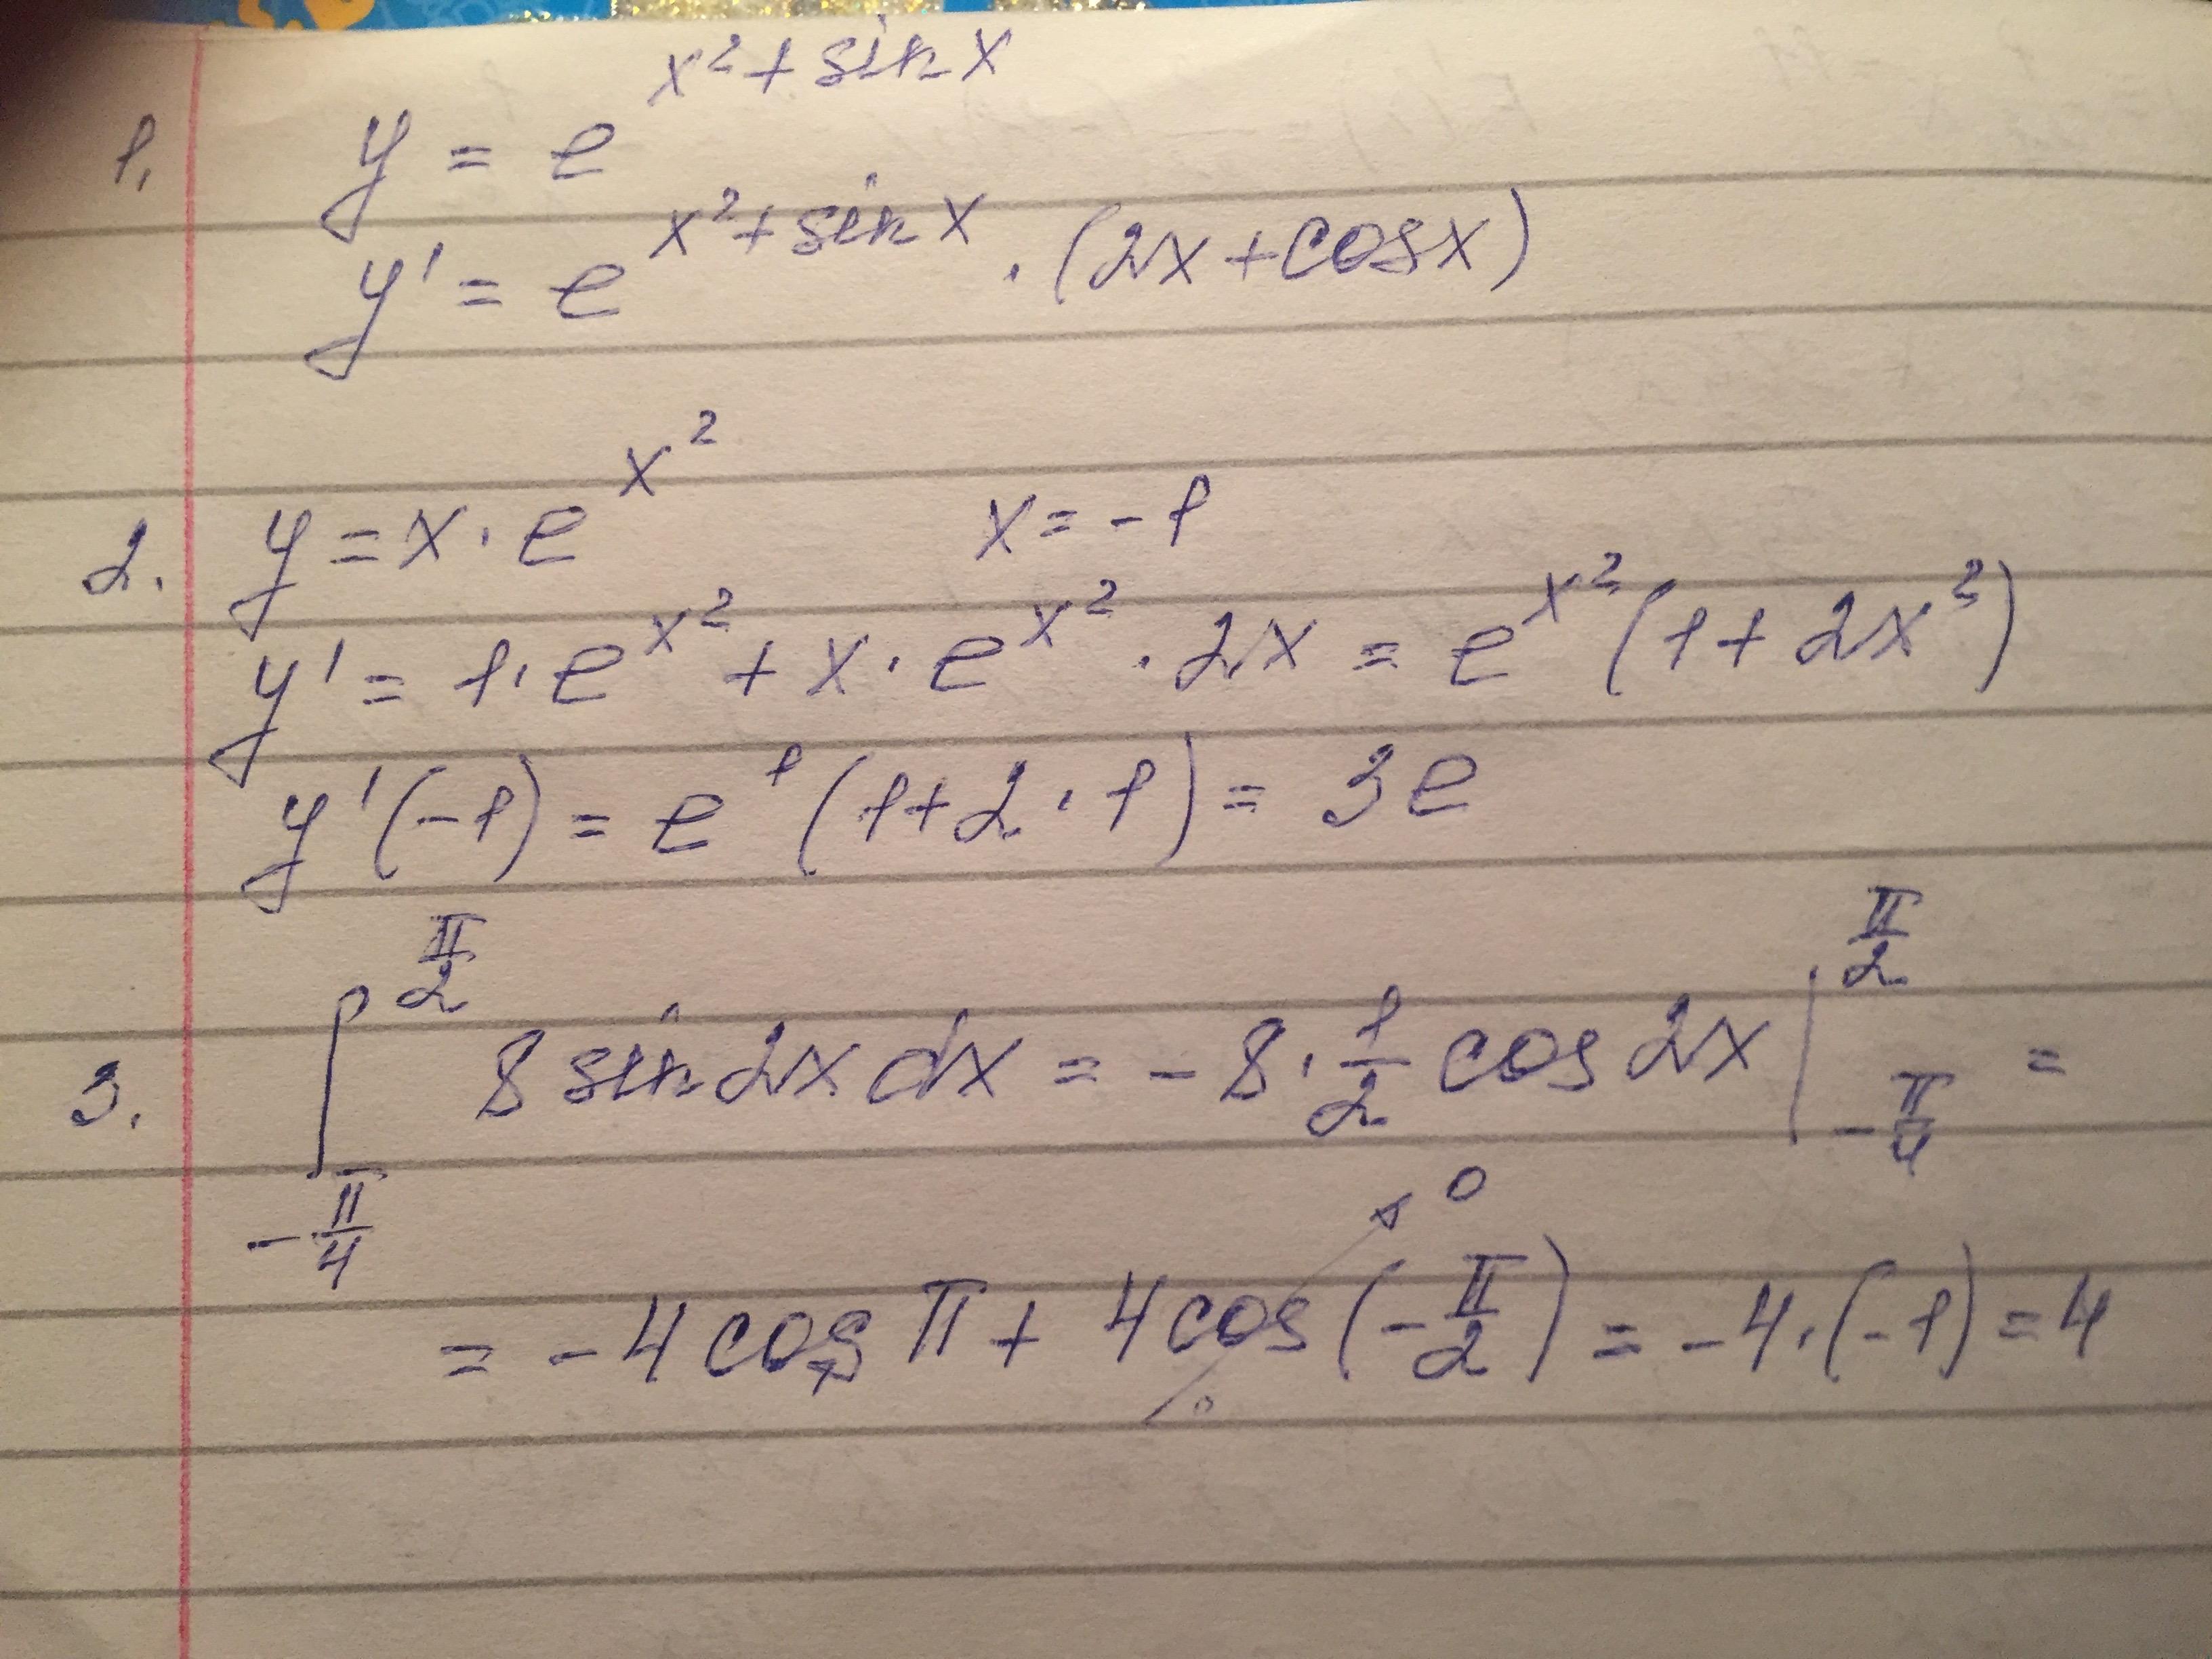 1. y = e^(x² + sin x)
y' = e^(x² + sin x) · (2x + cos x)
2. y = x · e^(x²) x = -1
y' = 1 · e^(x²) + x · e^(x²) · 2x = e^(x²) (1 + 2x²)
y'(-1) = e¹ (1 + 2 · 1) = 3e
3. ∫_(-π/4)^(π/2) 8 sin 2x dx = -8 · 1/2 cos 2x |_(-π/4)^(π/2) =
= -4 cos π + 4 cos (-π/2) ↗ 0 = -4 · (-1) = 4